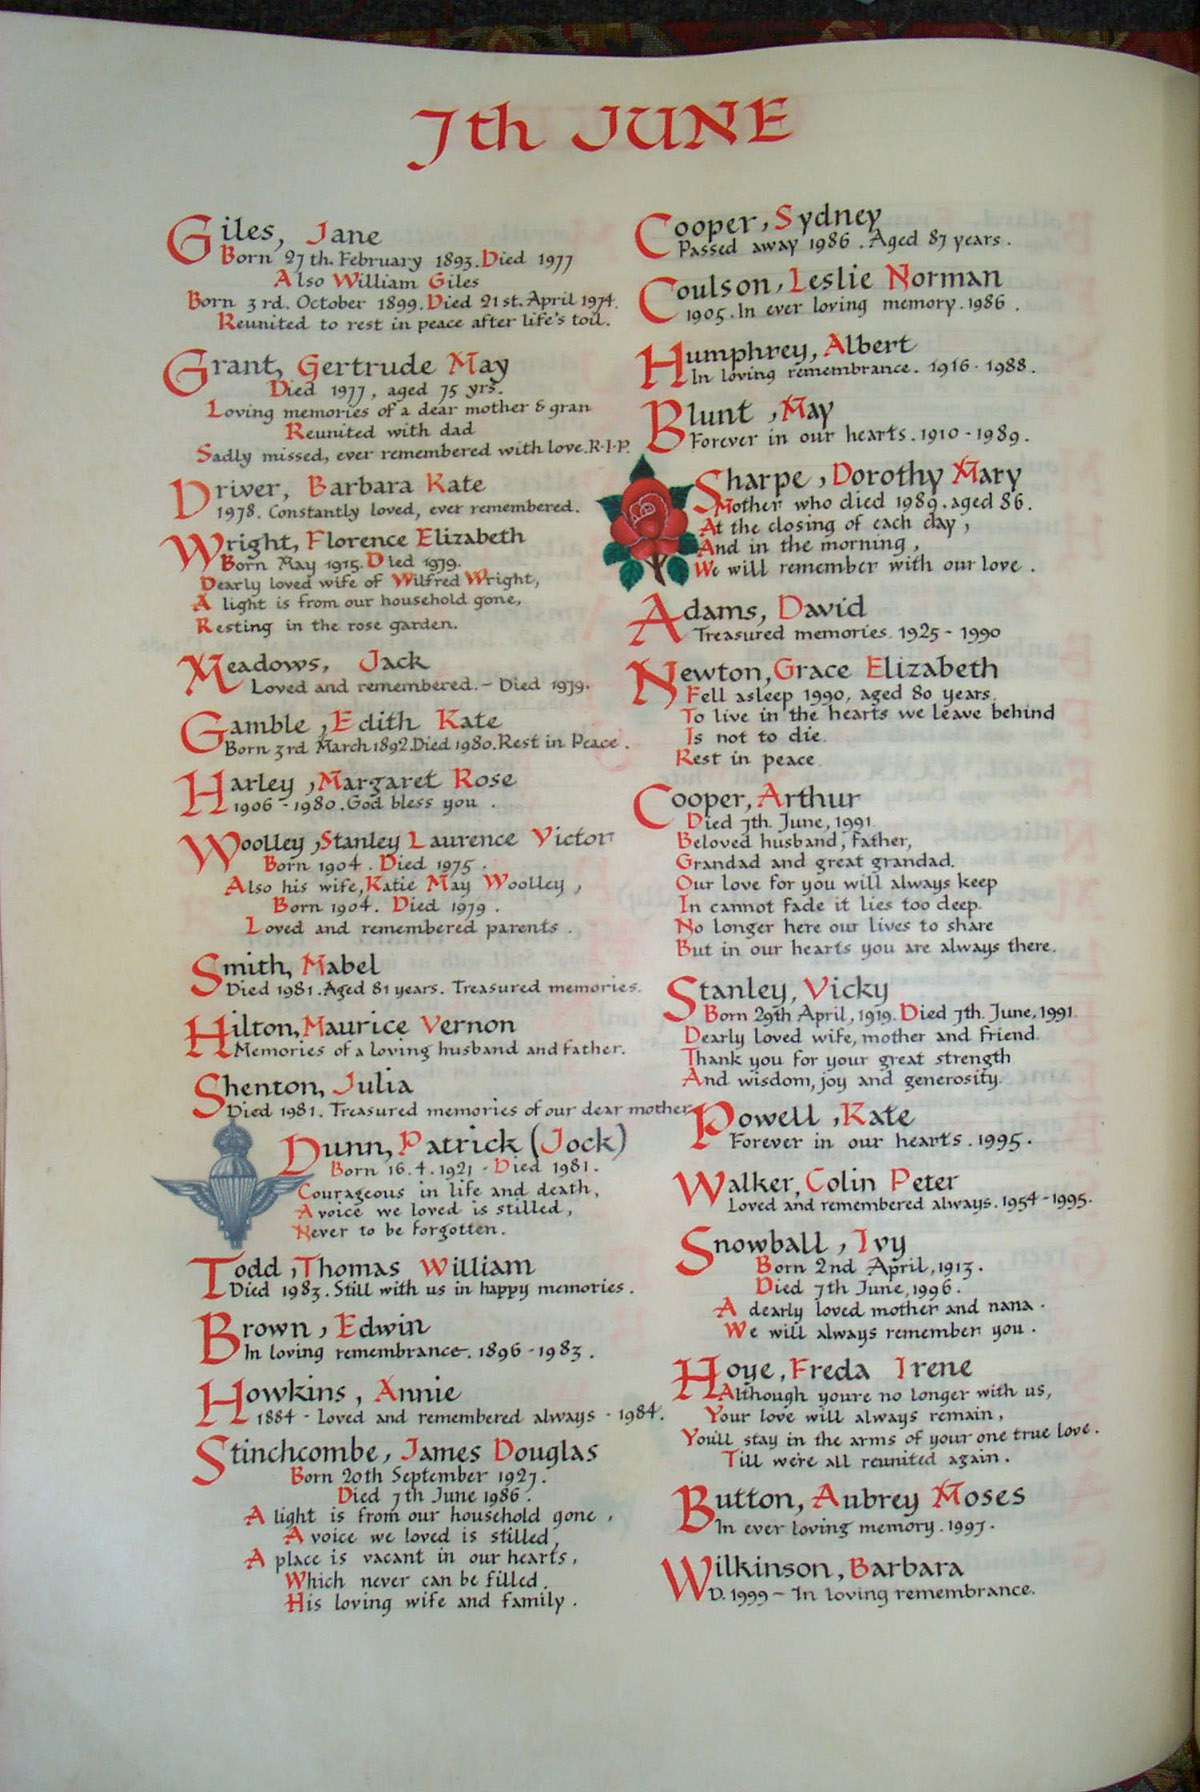 7th JUNE
Giles, Jane
Born 27th. February 1893. Died 1977
Also William Giles
Born 3rd. October 1899. Died 21st. April 1974.
Reunited to rest in peace after life's toil.
Grant, Gertrude May
Died 1977, aged 75 yrs.
Loving memories of a dear mother & gran
Reunited with dad
Sadly missed, ever remembered with love. R.I.P.
Driver, Barbara Kate
1978. Constantly loved, ever remembered.
Wright, Florence Elizabeth
Born May 1915. Died 1979.
Dearly loved wife of Wilfred Wright,
A light is from our household gone,
Resting in the rose garden.
Meadows, Jack
Loved and remembered. - Died 1979.
Gamble, Edith Kate
Born 3rd March 1892. Died 1980. Rest in Peace.
Harley, Margaret Rose
1906 - 1980. God bless you.
Woolley, Stanley Laurence Victor
Born 1904. Died 1975.
Also his wife, Katie May Woolley,
Born 1904. Died 1979.
Loved and remembered parents.
Smith, Mabel
Died 1981. Aged 81 years. Treasured memories.
Hilton, Maurice Vernon
Memories of a loving husband and father.
Shenton, Julia
Died 1981. Treasured memories of our dear mother
Dunn, Patrick (Jock)
Born 16.4.1921 - Died 1981.
Courageous in life and death,
A voice we loved is stilled,
Never to be forgotten.
Todd, Thomas William
Died 1983. Still with us in happy memories.
Brown, Edwin
In loving remembrance. 1896 - 1983.
Howkins, Annie
1884 - Loved and remembered always - 1984.
Stinchcombe, James Douglas
Born 20th September 1927.
Died 7th June 1986.
A light is from our household gone,
A voice we loved is stilled,
A place is vacant in our hearts,
Which never can be filled.
His loving wife and family.
Cooper, Sydney
Passed away 1986. Aged 87 years.
Coulson, Leslie Norman
1905. In ever loving memory. 1986.
Humphrey, Albert
In loving remembrance. 1916 - 1988.
Blunt, May
Forever in our hearts. 1910 - 1989.
Sharpe, Dorothy Mary
Mother who died 1989. aged 86.
At the closing of each day,
And in the morning,
We will remember with our love.
Adams, David
Treasured memories. 1925 - 1990
Newton, Grace Elizabeth
Fell asleep 1990, aged 80 years.
To live in the hearts we leave behind
Is not to die.
Rest in peace.
Cooper, Arthur
Died 7th. June, 1991.
Beloved husband, father,
Grandad and great grandad.
Our love for you will always keep
In cannot fade it lies too deep.
No longer here our lives to share
But in our hearts you are always there.
Stanley, Vicky
Born 29th April, 1919. Died 7th. June, 1991.
Dearly loved wife, mother and friend.
Thank you for your great strength
And wisdom, joy and generosity.
Powell, Kate
Forever in our hearts. 1995.
Walker, Colin Peter
Loved and remembered always. 1954 - 1995.
Snowball, Ivy
Born 2nd April, 1913.
Died 7th June, 1996.
A dearly loved mother and nana.
We will always remember you.
Hoye, Freda Irene
Although you're no longer with us,
Your love will always remain,
You'll stay in the arms of your one true love.
Till we're all reunited again.
Button, Aubrey Moses
In ever loving memory. 1997.
Wilkinson, Barbara
D. 1999 - In loving remembrance.